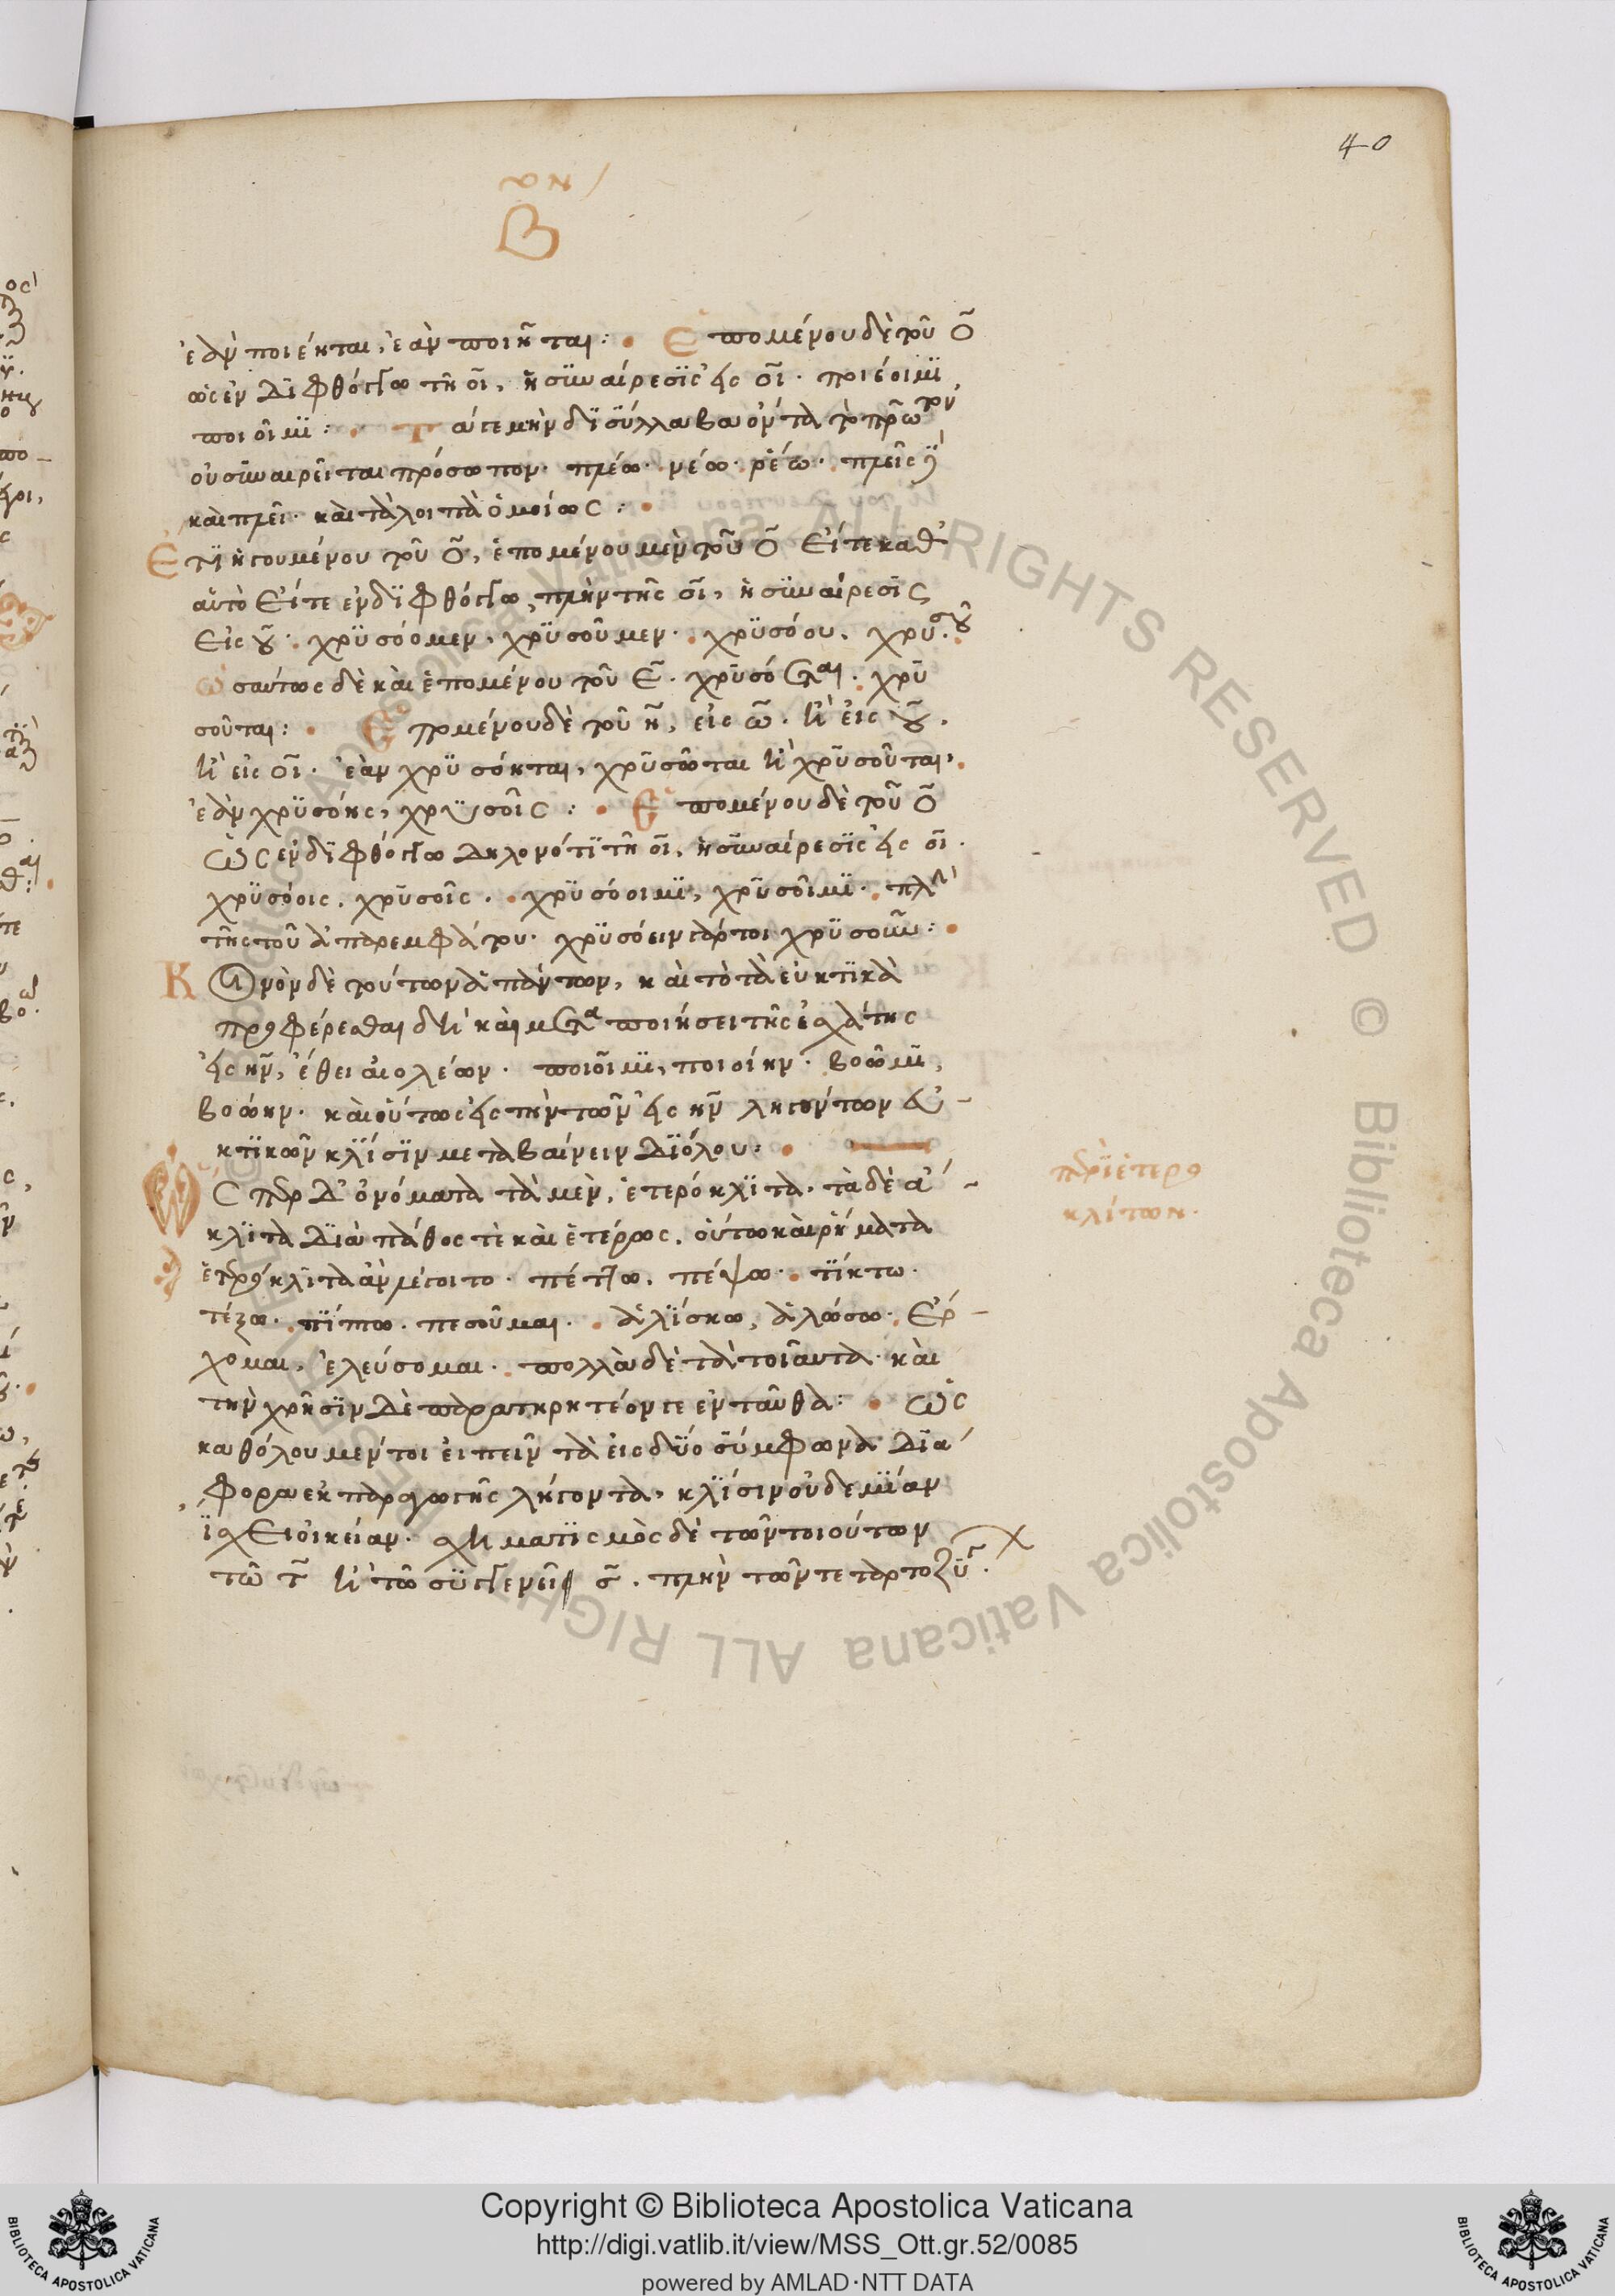 40
Β
ἐὰν ποιέηται, ἐὰν ποιῆται: Ἑπομένου δὲ τοῦ ο
ὡς ἐν διφθόγγω τῆ οι, ἡ συναίρεσις εἰς οι. ποιέοιμι
ποιοῖμι: Τά γε μὴν δισύλλαβα ὄντα τὸ πρῶτον
οὐ συναιρεῖται πρόσωπον. πλέω. νέω. ῥέω. πλεῖς
καὶ πλεῖ. καὶ τὰ λοιπὰ ὁμοίως:
Ἔτι ἡγουμένου τοῦ ο, ἑπομένου μὲν τοῦ ο εἴτε καθ'
αὑτὸ εἴτε ἐν διφθόγγω, πλὴν τῆς οι, ἡ συναίρεσις
εἰς ου. χρυσόομεν, χρυσοῦμεν. χρυσόου. χρυσοῦ
ὡσαύτως δὲ καὶ ἑπομένου τοῦ ε. χρυσόεται. χρυ
σοῦται: Ἑπομένου δὲ τοῦ η, εἰς ω. ἢ εἰς ου.
ἢ εἰς οι. ἐὰν χρυσόηται, χρυσῶται ἢ χρυσοῦται.
ἐὰν χρυσόης, χρυσοῖς: Ἑπομένου δὲ τοῦ ο
ὡς ἐν διφθόγγω δηλονότι τῆ οι, ἡ συναίρεσις εἰς οι.
χρυσόοις, χρυσοῖς. χρυσόοιμι, χρυσοῖμι. πλὴν
τῆς τοῦ ἀπαρεμφάτου. χρυσόειν γάρ τοι χρυσοῦν:
Κοινὸν δὲ τούτων ἁπάντων, καὶ τὸ τὰ εὐκτικὰ
προφέρεσθαι δὴ καὶ μετα ποιήσει τῆς ἐσχάτης
εἰς ην, ἔθει αἰολέων. ποιοῖμι, ποιοίην. βοῶμι,
βοώην. καὶ οὕτως εἰς τὴν τῶν εἰς ην ληγόντων εὐ-
κτικῶν κλίσιν μεταβαίνειν διόλου.
Ὥσπερ δ' ὀνόματα τὰ μὲν, ἑτερόκλιτα. τὰ δὲ ἄ-
κλιτα διὰ πάθος τὲ καὶ ἑτέρως. οὕτω καὶ ῥήματα
περὶ ἑτερο
κλίτων.
ἑτερόκλιτα ἂν λέγοιτο. πέπτω. πέψω. τίκτω.
τέξω. πίπτω. πεσοῦμαι. ἁλίσκω, ἁλώσω. ἔρ-
χομαι, ἐλεύσομαι. πολλὰ δὲ τὰ τοιαῦτα. καὶ
τὴν χρῆσιν δὲ παρατηρητέον γε ἐνταῦθα: ὡς
καθόλου μέντοι εἰπεῖν τὰ εἰς δύο σύμφωνα διά
φορα ἐκ παραγωγῆς λήγοντα, κλίσιν οὐδεμίαν
ἴσχει οἰκείαν. σχηματισμὸς δὲ τῶν τοιούτων
τῶ τ ἢ τῶ συγγενεῖ σ. πλὴν τῶν τεταρτοζύ
Copyright © Biblioteca Apostolica Vaticana
http://digi.vatlib.it/view/MSS_Ott.gr.52/0085
powered by AMLAD·NTT DATA